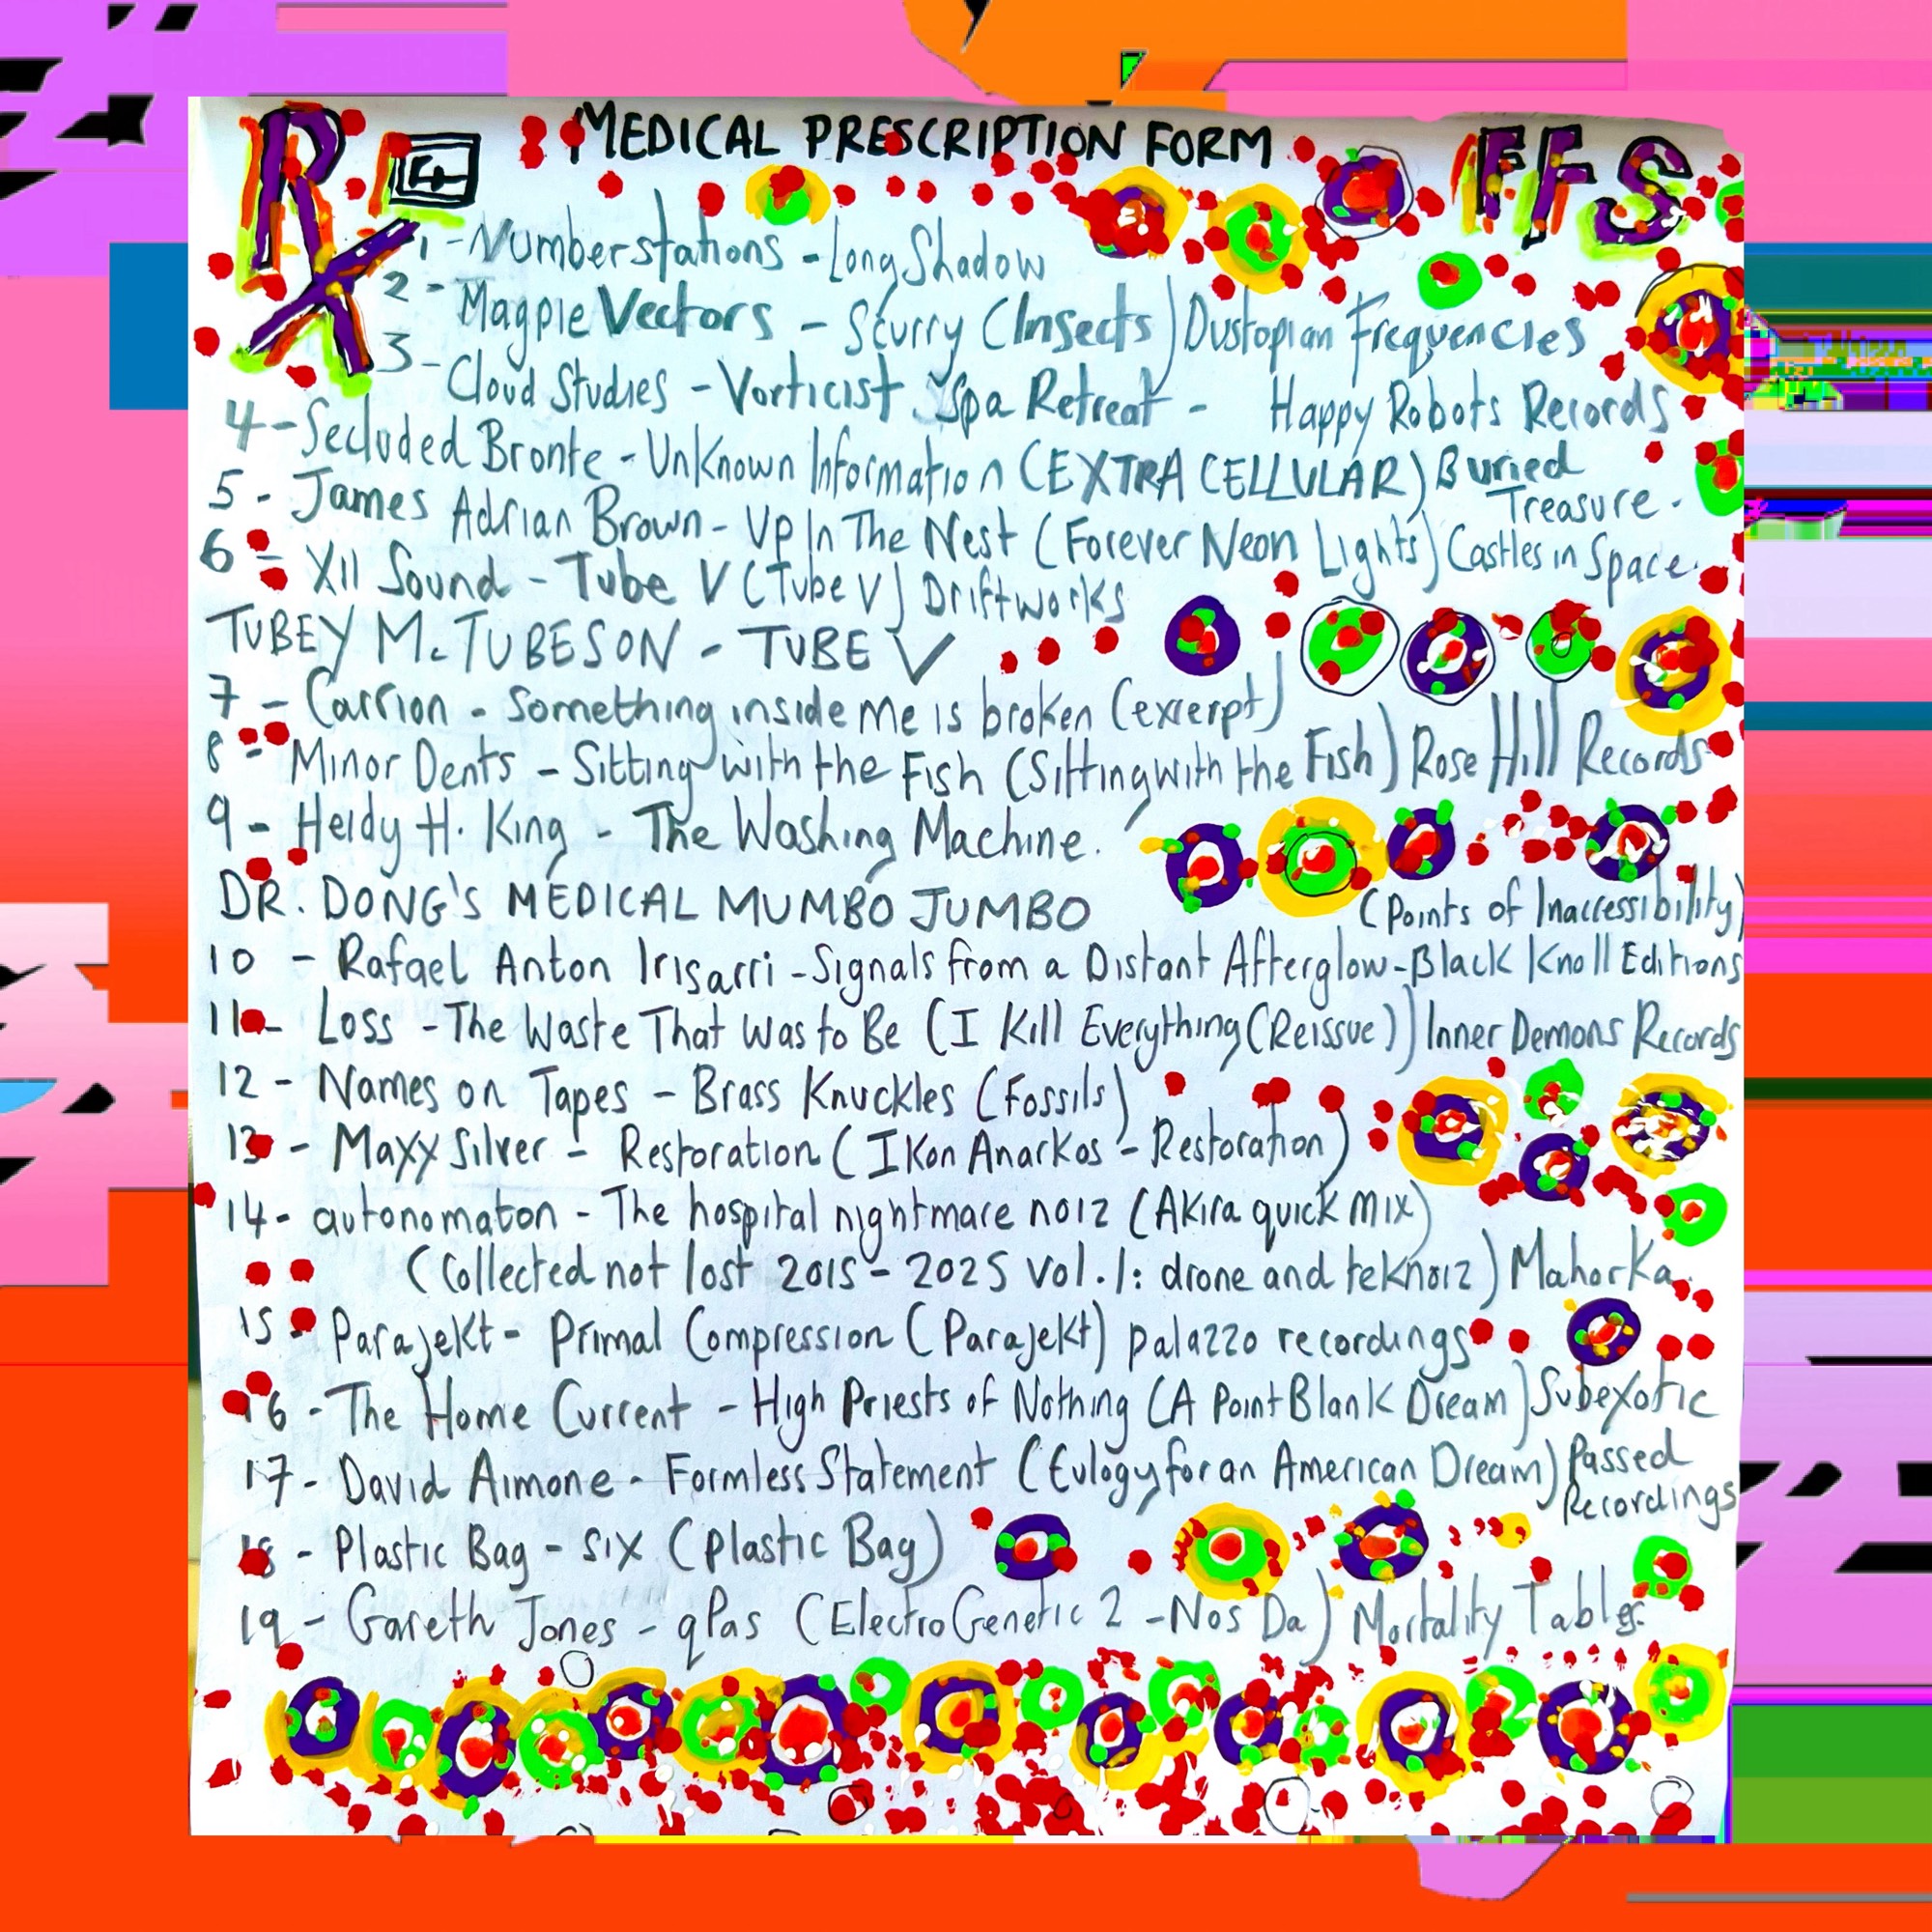 Rx MEDICAL PRESCRIPTION FORM FFS
1 - Numberstations - Long Shadow
2 - Magpie Vectors - Scurry (Insects) Dustopian Frequencies
3 - Cloud Studies - Vorticist Spa Retreat - Happy Robots Records
4 - Secluded Bronte - Unknown Information (EXTRA CELLULAR) Buried Treasure.
5 - James Adrian Brown - Up In The Nest (Forever Neon Lights) Castles in Space.
6 - XII Sound - Tube V (Tube V) Driftworks
TUBEY Mc TUBESON - TUBE V
7 - Carrion - Something inside me is broken (excerpt)
8 - Minor Dents - Sitting with the Fish (Sitting with the Fish) Rose Hill Records
9 - Heidy H. King - The Washing Machine.
DR. DONG'S MEDICAL MUMBO JUMBO
(Points of Inaccessibility)
10 - Rafael Anton Irisarri - Signals from a Distant Afterglow - Black Knoll Editions
11 - Loss - The Waste That Was to Be (I Kill Everything (Reissue)) Inner Demons Records
12 - Names on Tapes - Brass Knuckles (Fossils)
13 - Maxy Silver - Restoration (IKon Anarkos - Restoration)
14 - autonomaton - The hospital nightmare noiz (Akira quick mix)
(Collected not lost 2015 - 2025 vol. 1: drone and teknoiz) Mahorka.
15 - Parajekt - Primal Compression (Parajekt) palazzo recordings
16 - The Home Current - High Priests of Nothing (A Point Blank Dream) Subexotic
17 - David Aimone - Formless Statement (Eulogy for an American Dream) Passed Recordings
18 - Plastic Bag - six (Plastic Bag)
19 - Gareth Jones - qPas (ElectroGenetic 2 - Nos Da) Mortality Tables.